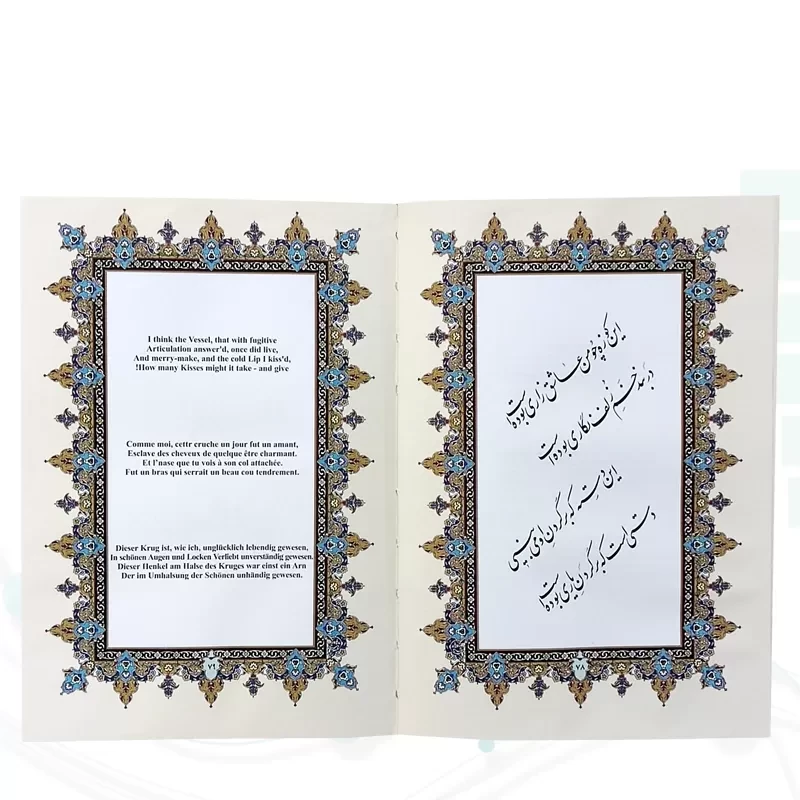 I think the Vessel, that with fugitive
Articulation answer'd, once did live,
And merry-make, and the cold Lip I kiss'd,
!How many Kisses might it take - and give
Comme moi, cettr cruche un jour fut un amant,
Esclave des cheveux de quelque être charmant.
Et l'nase que tu vois à son col attachée.
Fut un bras qui serrait un beau cou tendrement.
Dieser Krug ist, wie ich, unglücklich lebendig gewesen,
In schönen Augen und Locken Verliebt unverständig gewesen.
Dieser Henkel am Halse des Kruges war einst ein Arn
Der im Umhalsung der Schönen unhändig gewesen.
۷۹
این کوزه چو من عاشق زاری بوده است
در بند خَمِ زلف نگاری بوده است
این دسته که بر گردن اوی به بینی
دستی است که بر گردن یاری بوده است
۷۸